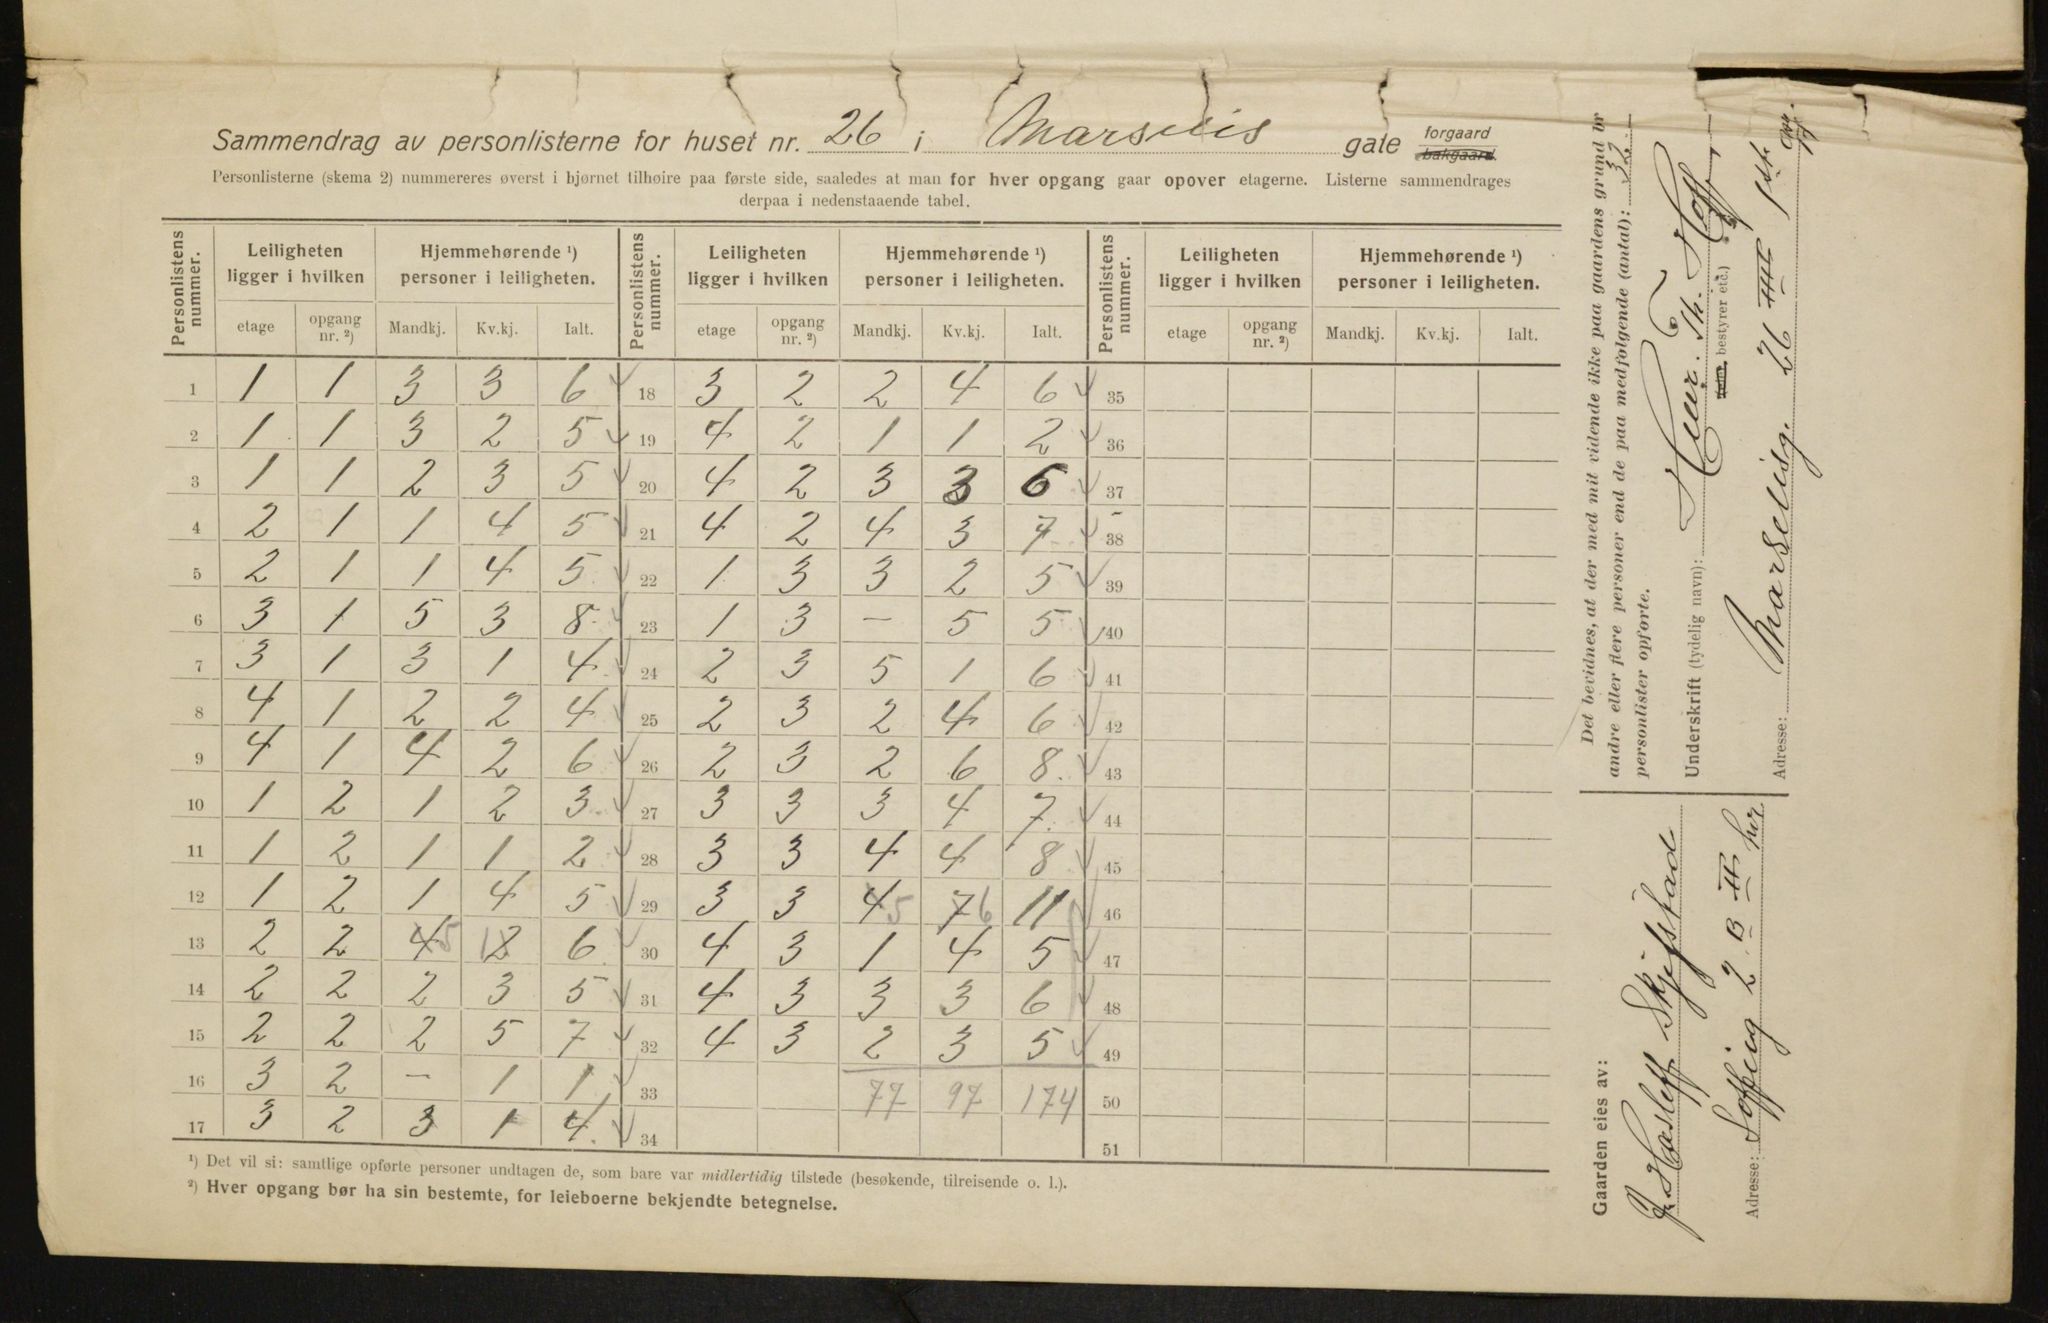 Sammendrag av personlisterne for huset nr. 26 i Marselis gate forgaard bakgaard.
Personlisterne (skema 2) nummereres øverst i bjørnet tilhøire paa første side, saaledes at man for hver opgang gaar opover etagerne. Listerne sammendrages
derpaa i nedenstaaende tabel.
Personlistens nummer. Leiligheten ligger i hvilken Hjemmehørende ¹) personer i leiligheten. Personlistens nummer. Leiligheten ligger i hvilken Hjemmehørende ¹) personer i leiligheten. Personlistens nummer. Leiligheten ligger i hvilken Hjemmehørende ¹) personer i leiligheten.
etage opgang nr. ²) Mandkj. Kv.kj. Ialt. etage opgang nr. ²) Mandkj. Kv.kj. Ialt. etage opgang nr. ²) Mandkj. Kv.kj. Ialt.
1 1 1 3 3 6 18 3 2 2 4 6 35
2 1 1 3 2 5 19 4 2 1 1 2 36
3 1 1 2 3 5 20 4 2 3 3 6 37
4 2 1 1 4 5 21 4 2 4 3 7 38
5 2 1 1 4 5 22 1 3 3 2 5 39
6 3 1 5 3 8 23 1 3 — 5 5 40
7 3 1 3 1 4 24 2 3 5 1 6 41
8 4 1 2 2 4 25 2 3 2 4 6 42
9 4 1 4 2 6 26 2 3 2 6 8 43
10 1 2 1 2 3 27 3 3 3 4 7 44
11 1 2 1 1 2 28 3 3 4 4 8 45
12 1 2 1 4 5 29 3 3 4 5 7 6 11 46
13 2 2 4 5 1 2 6 30 4 3 1 4 5 47
14 2 2 2 3 5 31 4 3 3 3 6 48
15 2 2 2 5 7 32 4 3 2 3 5 49
16 3 2 — 1 1 33 77 97 174 50
17 3 2 3 1 4 34 51
¹) Det vil si: samtlige opførte personer undtagen de, som bare var midlertidig tilstede (besøkende, tilreisende o. l.).
²) Hver opgang bør ha sin bestemte, for leieboerne bekjendte betegnelse.
Det bevidnes, at der med mit vidende ikke paa gaardens grund bor
andre eller flere personer end de paa medfølgende (antal): 32
personlister opførte.
Underskrift (tydelig navn): Th. Hoff
bestyrer etc.)
Adresse: Marselisg. 26
Gaarden eies av:
Hasleff Skjefstad
Adresse: Soffieig 2 B her